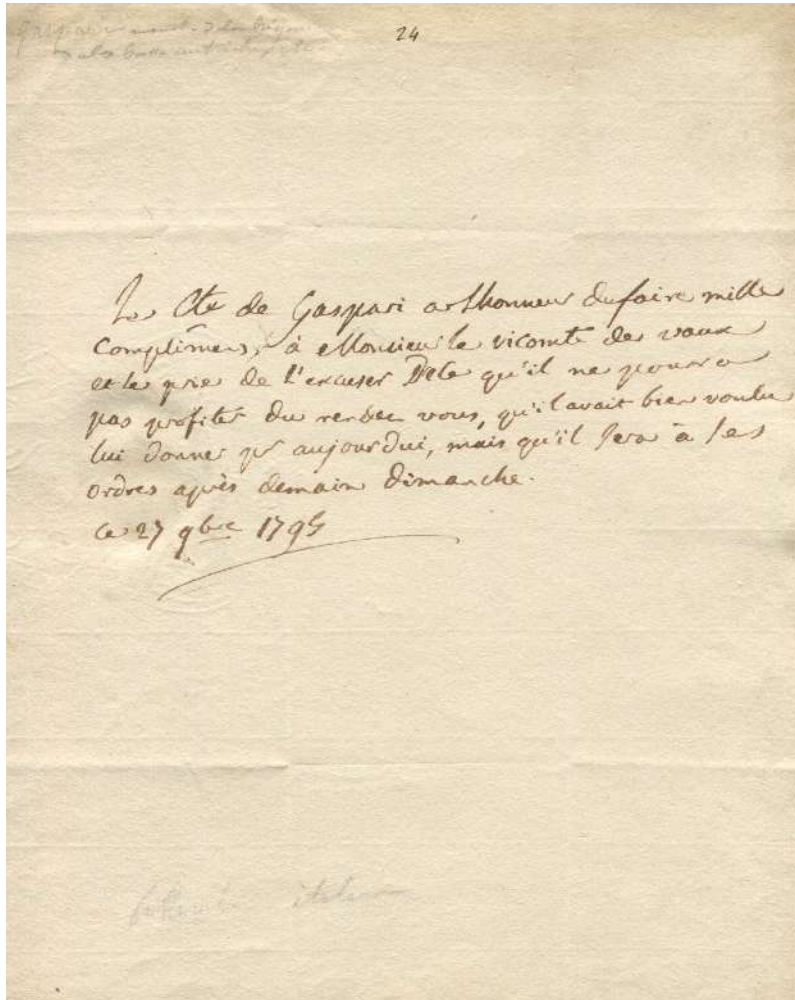 24
Le Cte de Gaspari a lhonneur de faire mille
complimens, à Monsieur le vicomte de vaux
et le prie de l'excuser De ce qu'il ne poura
pas profiter du rendez vous, qu'il avait bien voulu
lui donner pr aujourdui, mais qu'il sera à ses
ordres après demain dimanche.
ce 27 9bre 1795